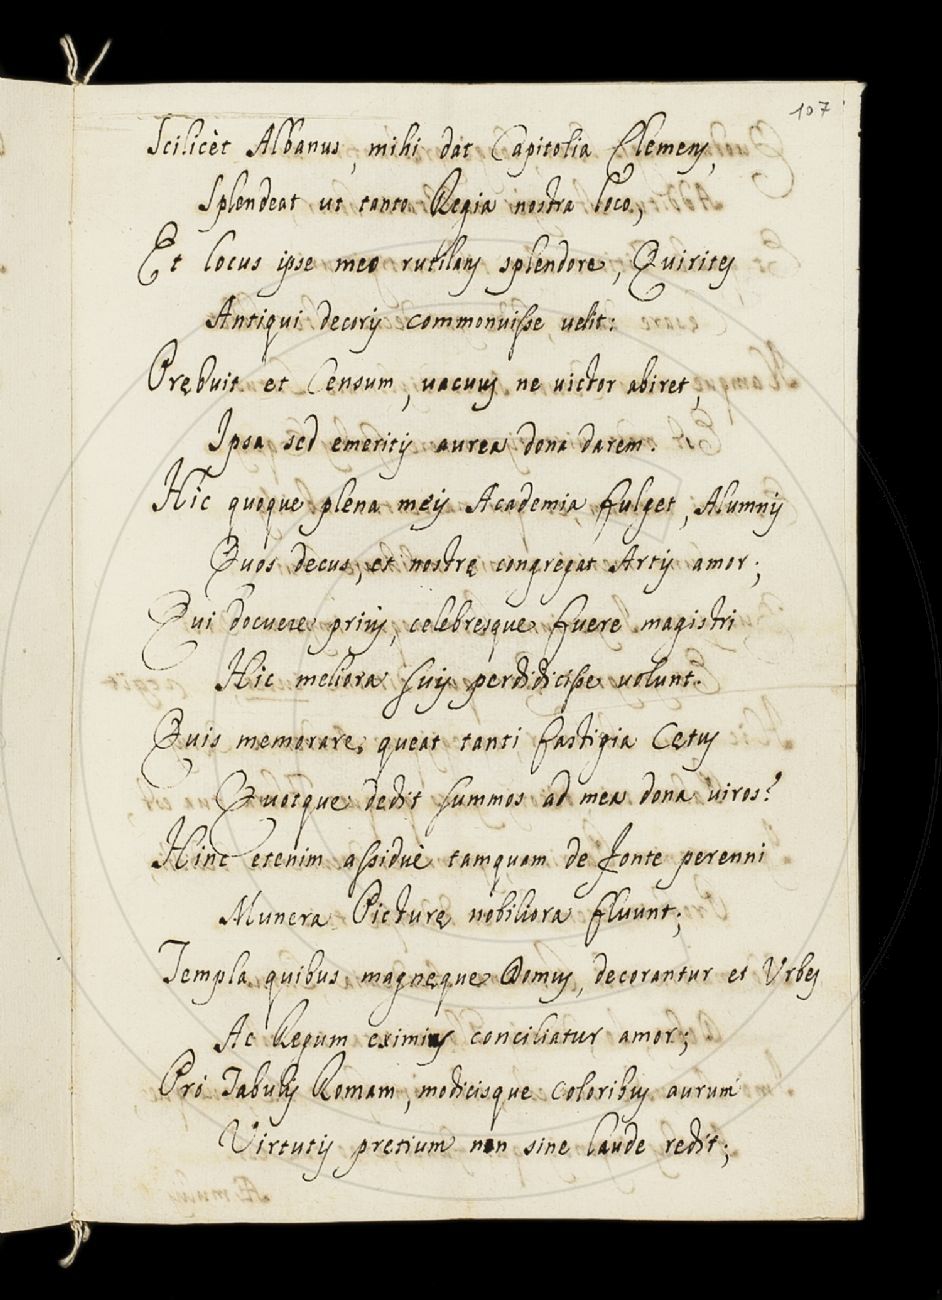 107
Scilicèt Albanus, mihi dat Capitolia Clemens,
Splendeat ut tanto Regia nostra loco,
Et locus ipse meo rutilans splendore, Quirites
Antiqui decoris commonuisse velit:
Prębuit et Censum, vacuus ne victor abiret,
Ipsa sed emeritis aurea dona darem.
Hic quoque plena meis Academia fulget, Alumnis
Quos decus, et nostrę congregat Artis amor;
Qui docuere prius, celebresque fuere magistri
Hic meliora suis perdidicisse volunt.
Quis memorare queat tanti fastigia Cętus
Quotque dedit summos ad mea dona viros?
Hinc etenim assiduè tamquam de fonte perenni
Munera Picturę nobiliora fluunt;
Templa quibus magnęque Domus, decorantur et Urbes
Ac Regum eximius conciliatur amor;
Pro Tabulis Romam, modicisque coloribus aurum
Virtutis pretium non sine laude redit;